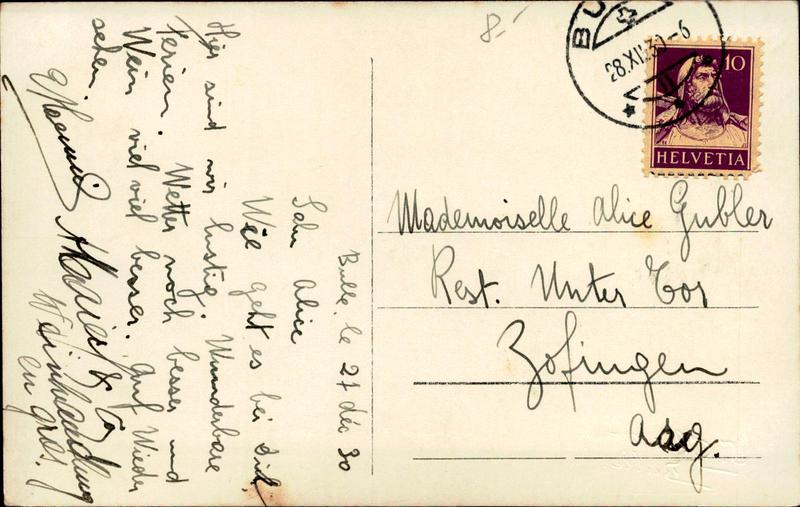 Bulle, le 27 déc 30
Salu Alice
Wie geht es bei Dir
Hier sind wir lustig. Wunderbare
Ferien. Wetter noch besser und
Wein viel viel besser. Auf Wieder
sehen.
Maurice & Co
Weinhandlung
en gros!
8.-
BU
28.XII.30-6
10
HELVETIA
Mademoiselle Alice Gubler
Rest. Unter Tor
Zofingen
Aarg.